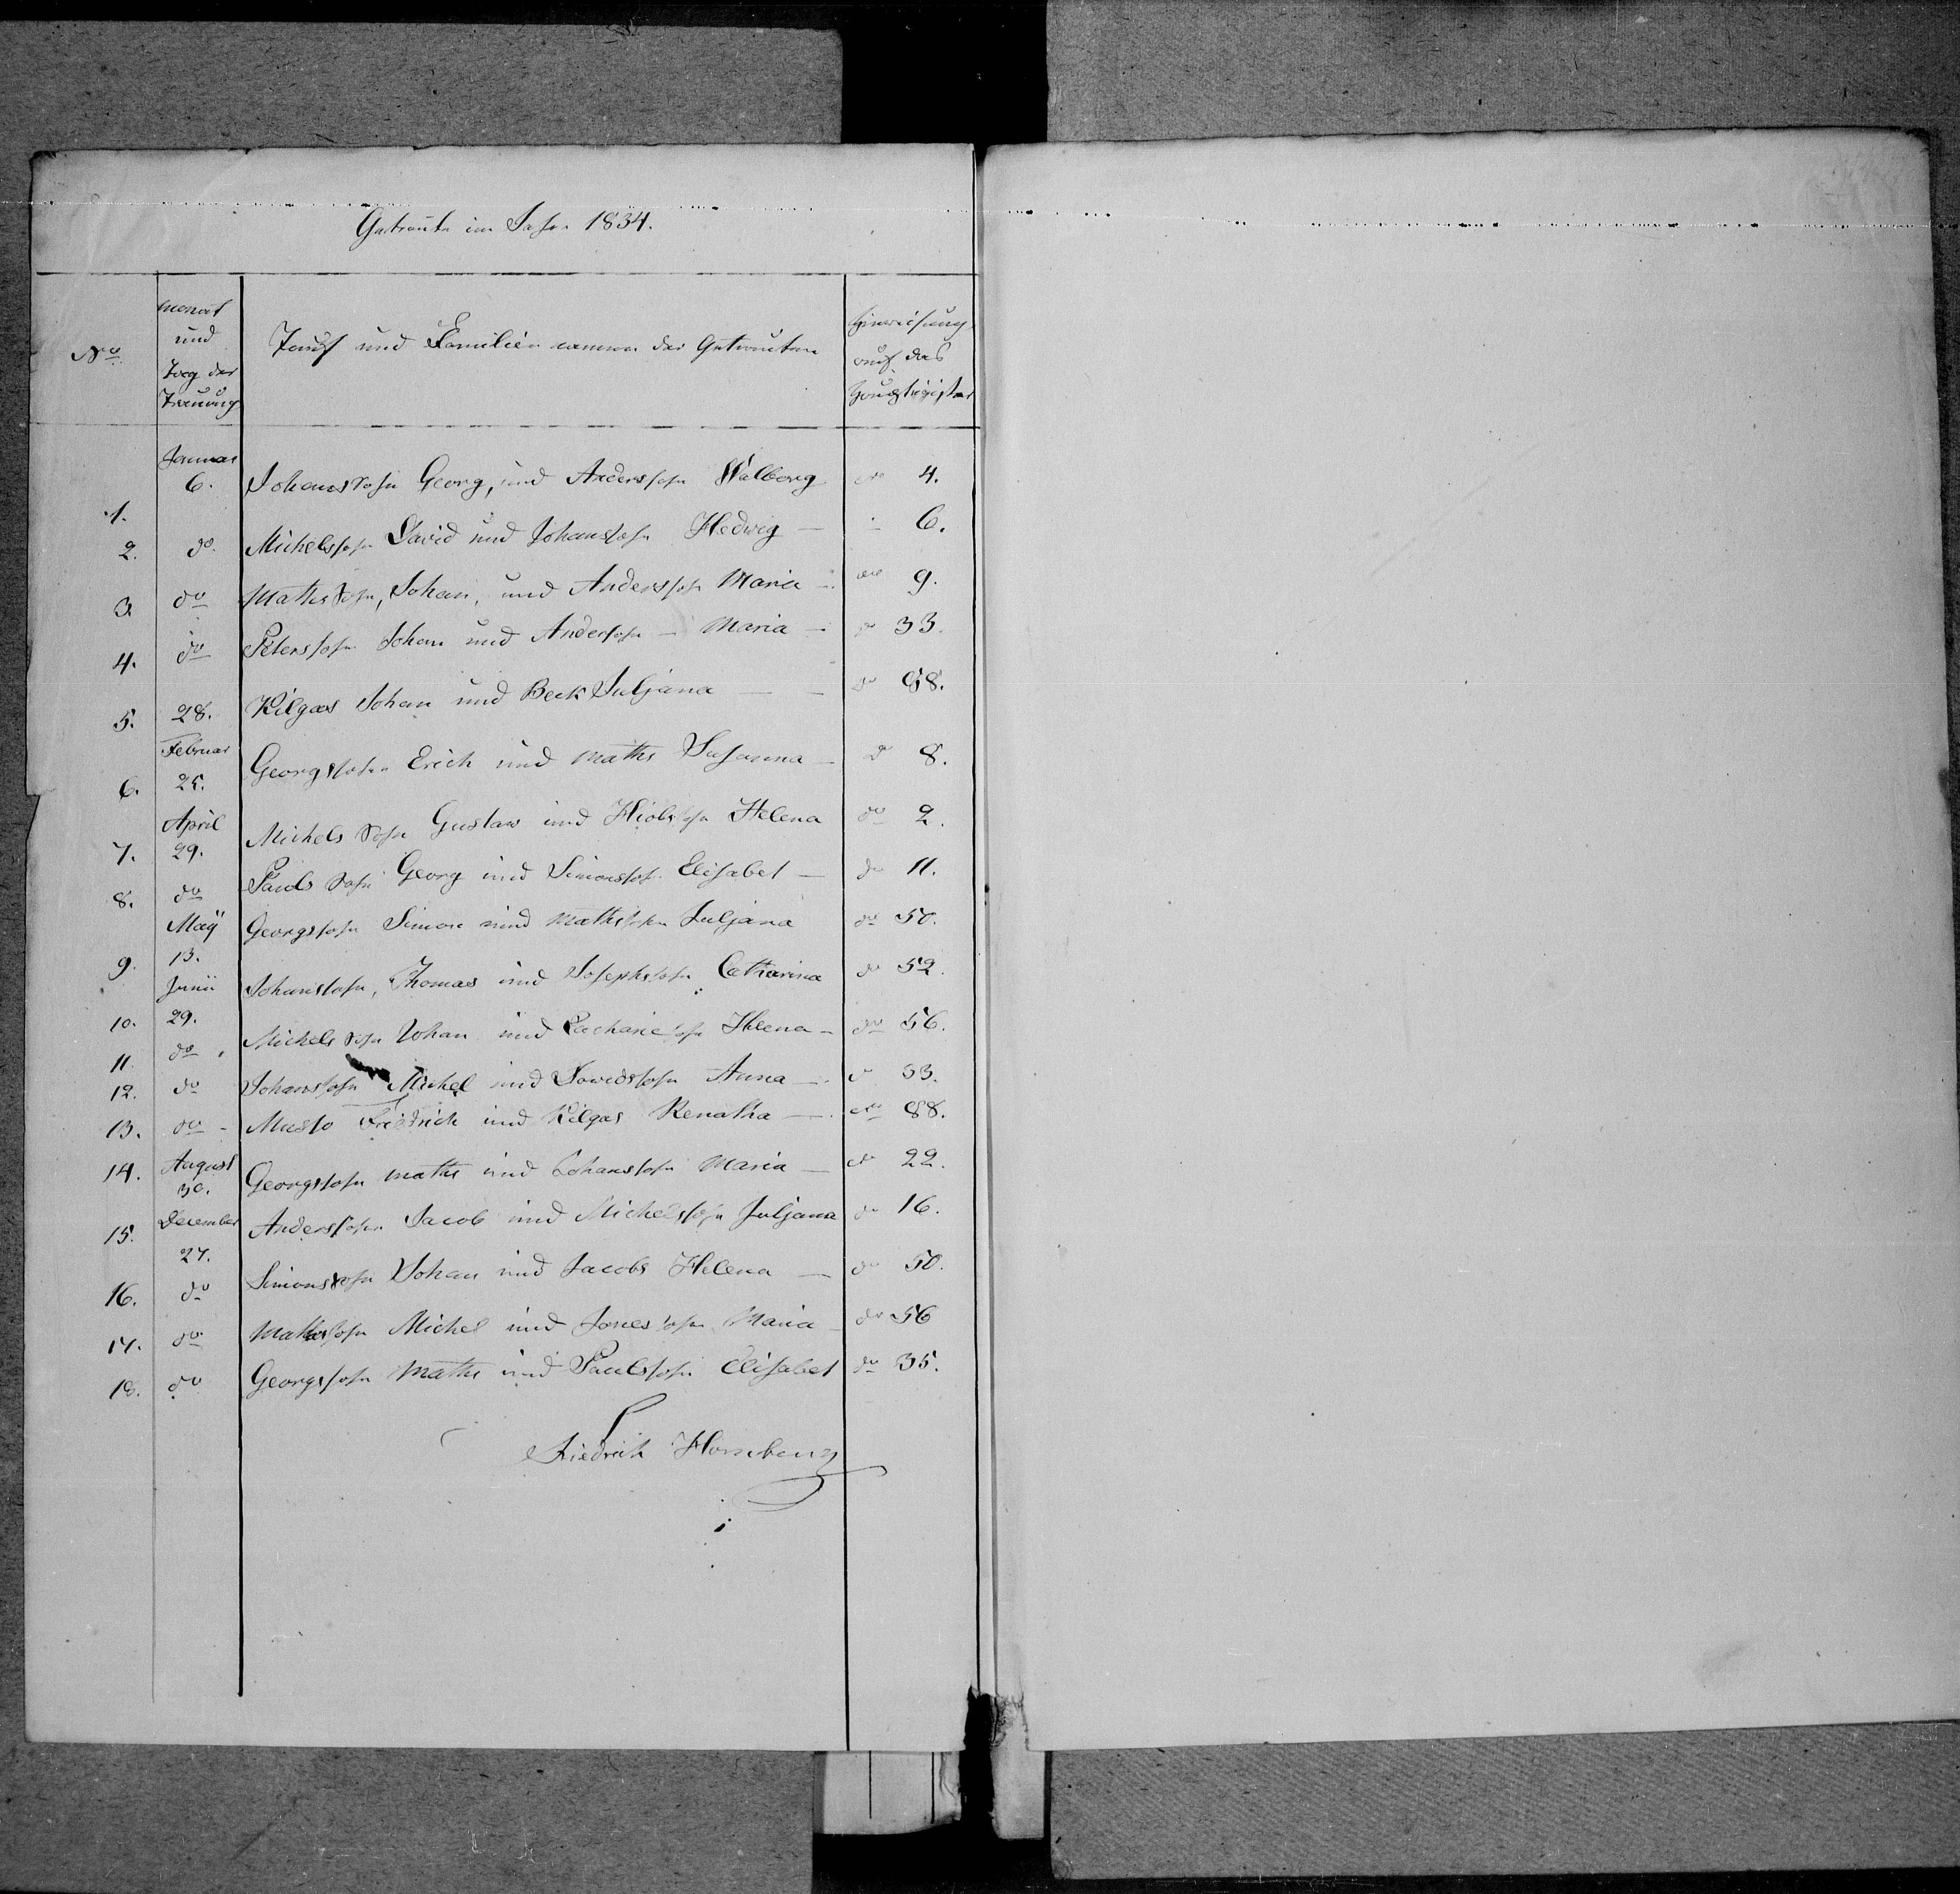 Getraute im Jahr 1834.
No
Monat und Tag der Trauung
Tauf und Familien namen der Getrauten
Hinweisung auf das Hauptregister
Januar
1. 6. Johanssohn Georg, und Anderssohn Walborg do 4.
2. do. Michelssohn David und Johanssohn Hedwig — 6.
3. do Mathssohn, Johan, und Anderssohn Maria — do 9.
4. do Peterssohn Johan und Andersohn — Maria — do 33.
5. 28. Kilgas Johan und Beck Juljana — do 98.
Februar
6. 25. Georgssohn Erich und Maths Susanna — do 8.
April
7. 29. Michels sohn Gustaw und Hiobssohn Helena do 2.
8. do Pauls sohn Georg und Simonssoh. Elisabet — do 11.
Maÿ
9. 13. Georgssohn Simon und Mathssohn Juljana do 50.
Junii
10. 29. Johanssohn, Thomas und Josephssohn Catharina do 52.
11. do. Michels sohn Johan und Zacharie sohn Helena — do 56.
12. do Johanssohn Michel und Davidssohn Anna — do 53.
13. do — Musso Friedrich und Kilgas Renatha — do 88.
August
14. 30. Georgssohn Maths und Johanssohn Maria — do 22.
December
15. 27. Anderssohn Jacob und Michelssohn Juljana do 16.
16. do Simonssohn Johan und Jacobs Helena — do 50.
17. do Mathssohn Michel und Jonessohn Maria — do 56
18. do Georgssohn Maths und Paulssohn Elisabet do 35.
Friedrich Hornberg